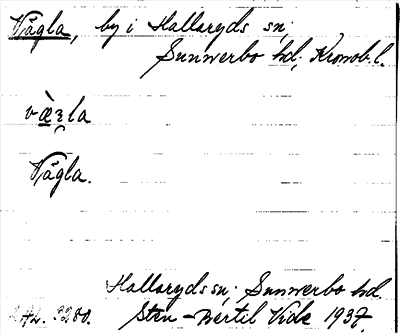 Vägla, by i Hallaryds sn,
Sunnerbo hd, Kronob. l.
Vägla.
Hallaryds sn, Sunnerbo hd.
3280. Sten-Bertil Vide 1937.